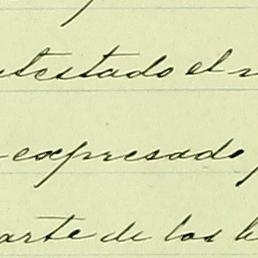 intestado el
expresado
parte de los